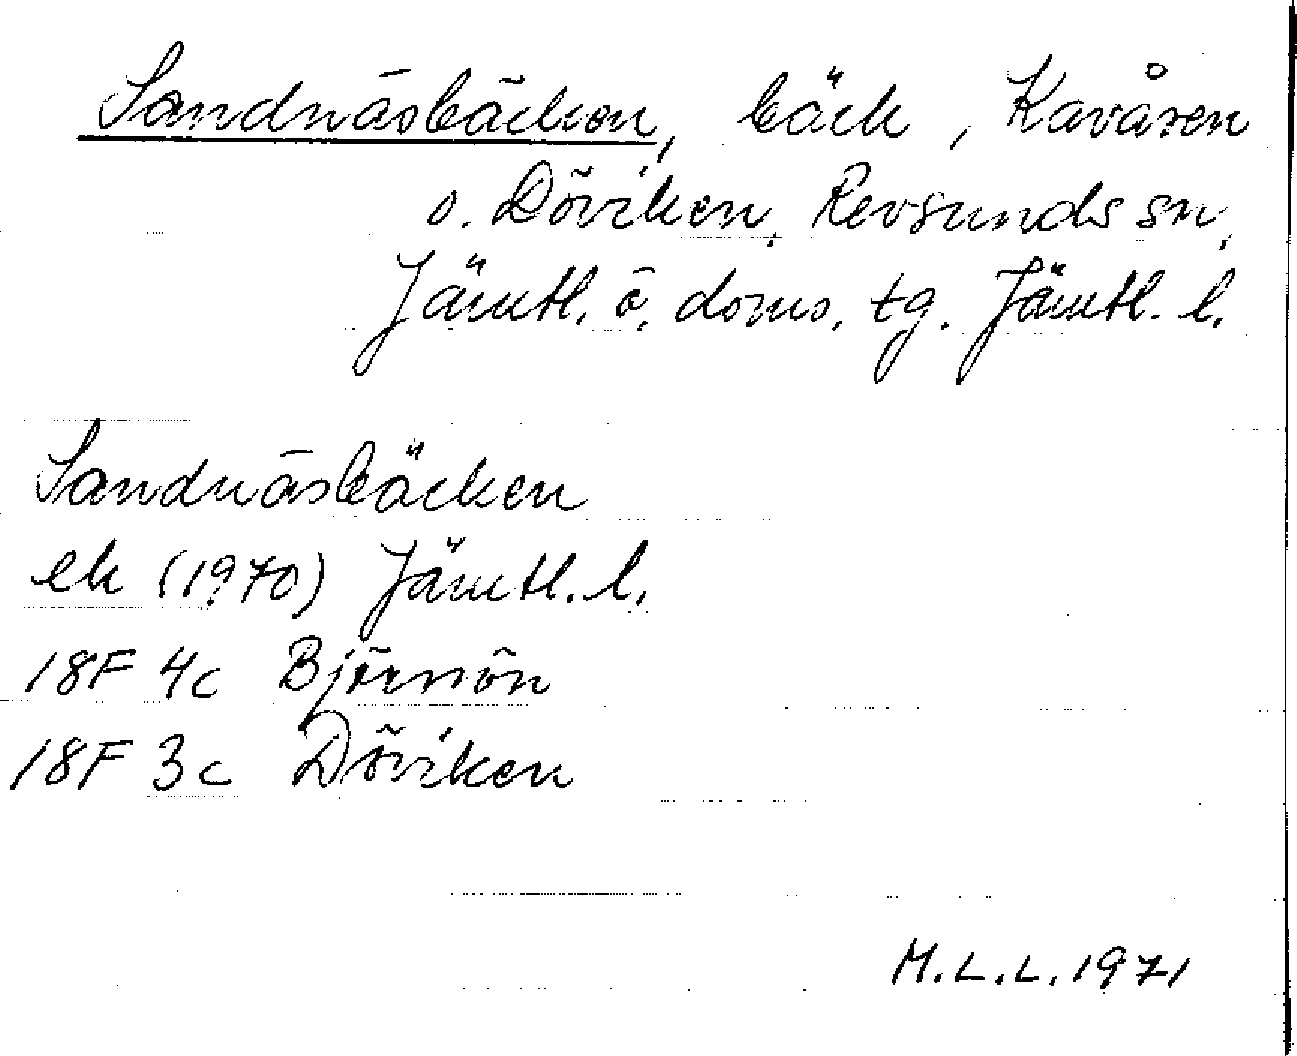 Sandnäsbäcken, bäck, Kavåsen
o. Döviken, Revsunds sn,
Jämtl. ö. doms. tg. Jämtl. l.
Sandnäsbäcken
ek (1970) Jämtl. l.
18F 4c Björnön
18F 3c Döviken
M.L.L. 1971